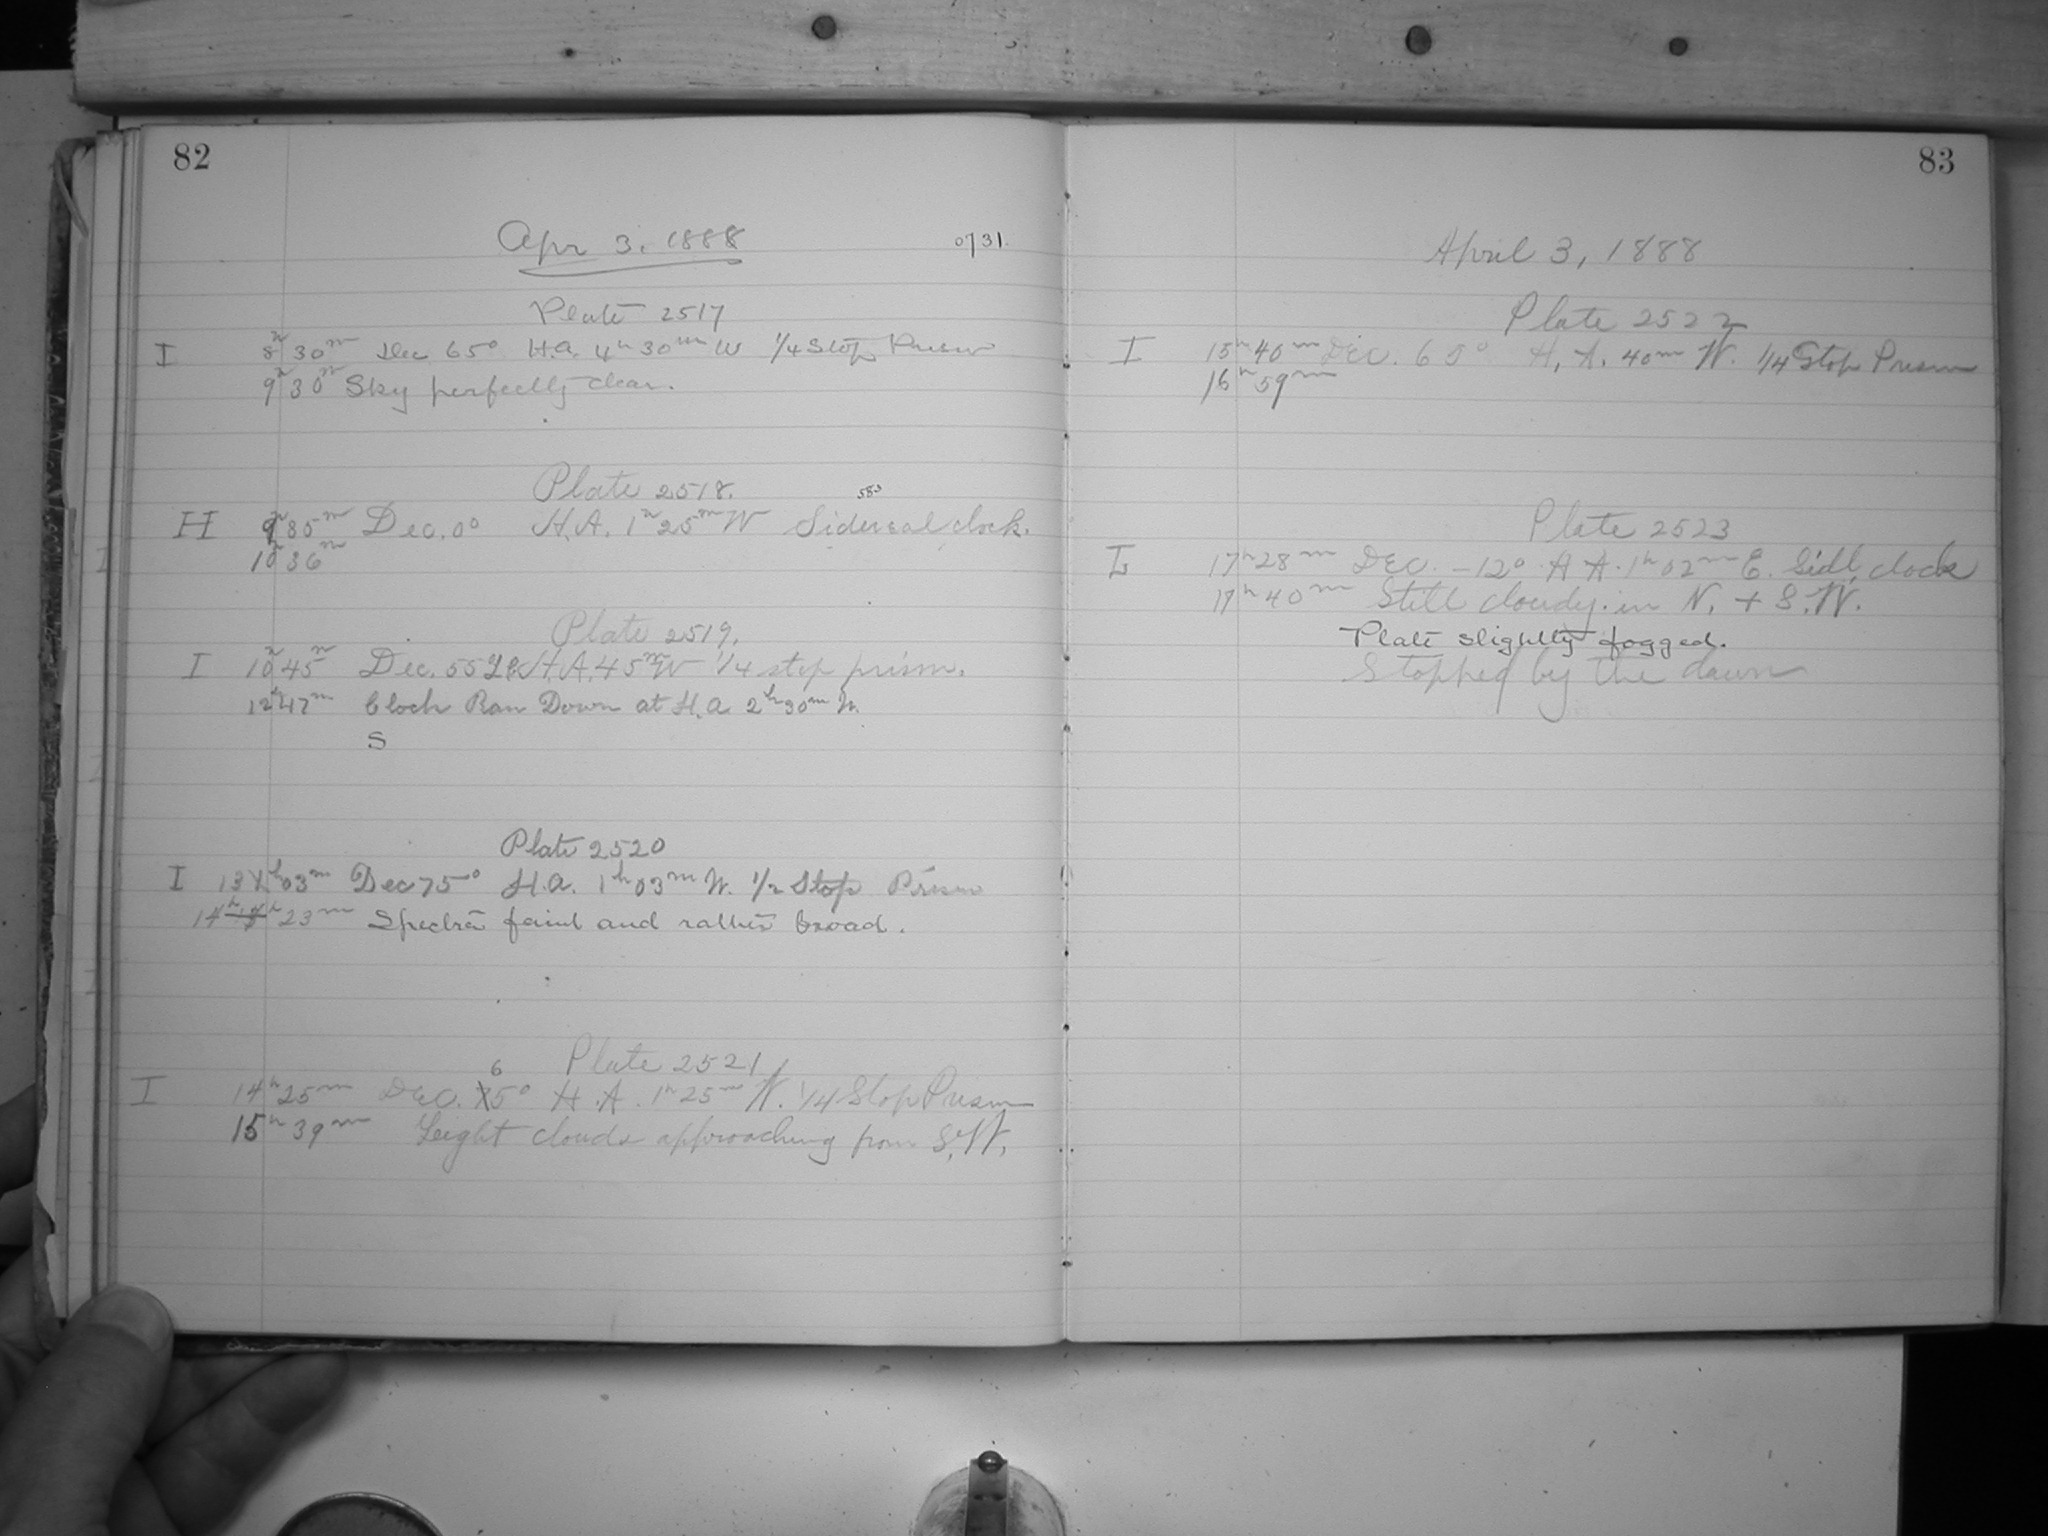 82
Apr 3. 1888
0731.
Plate 2517
I 8h 30m Dec 65° H.A. 4h 30m W 1/4 Stop Prism
9h 30m Sky perfectly clear.
Plate 2518.
583
H 9h 35m Dec. 0° H.A. 1h 25m W Sidereal clock.
10h 36m
Plate 2519.
I 10h 45m Dec. 55 H.A. 45m W 1/4 stop prism.
12h 17m Clock Ran Down at H.a 2h 30m W.
S
Plate 2520
I 13h 03m Dec 75° H.a. 1h 03m W. 1/2 Stop Prism
14h 23m Spectra faint and rather broad.
Plate 2521
6
I 14h 25m Dec. 75° H.A. 1h 25m W. 1/4 Stop Prism
15h 39m Light clouds approaching from S.W.
83
April 3, 1888
Plate 2522
I 15h 40m Dec. 65° H.A. 40m W. 1/4 Stop Prism
16h 59m
Plate 2523
I 17h 28m Dec. -12° H A. 1h 02m E. Sidl. clock
17h 40m Still cloudy in N. + S.W.
Plate slightly fogged.
Stopped by the dawn